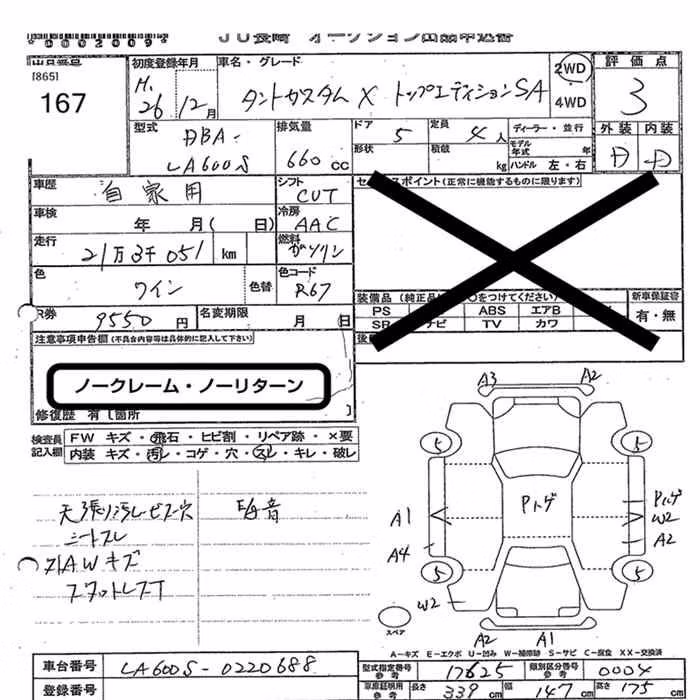 *0002009*
JU長崎 オークション出品申込書
出品番号
[865]
167
初度登録年月
H.26年12月
車名・グレード
タントカスタム X トップエディションSA
2WD
・
4WD
評価点
3
外装 内装
D D
型式
DBA-
LA600S
排気量
660 cc
ドア 5
定員 4人
形状
積載 kg
ディーラー・並行
モデル年式 年
ハンドル 左・右
車歴 自家用
シフト CVT
車検 年 月( 日)
冷房 AAC
走行 21万3千051 km
燃料 ガソリン
色 ワイン
色替
色コード R67
R券 9550円
名変期限 月 日
セールスポイント(正常に機能するものに限ります)
装備品
PS
ABS エアB
SR ナビ TV カワ
新車保証書
有・無
注意事項申告欄(不具合内容等は具体的に記入して下さい)
ノークレーム・ノーリターン
修復歴 有[箇所 ]
検査員記入欄
FW キズ・飛石・ヒビ割・リペア跡・×要
内装 キズ・汚レ・コゲ・穴・スレ・キレ・破レ
天張り汚レビス穴
シートスレ
外AWキズ
スタットレスT
A3 A2
5 5
Pトゲ
Pトゲ
W2
A2
A1
A4
5 5
W2
スペア
A2 A1
A-キズ E-エクボ U-凹み W-補修跡 S-サビ C-腐食 XX-交換済
車台番号 LA600S-0220688
登録番号
型式指定番号参考 17625
類別区分番号参考 0004
車庫証明用参考
長さ 339 cm
幅 147 cm
高さ 175 cm